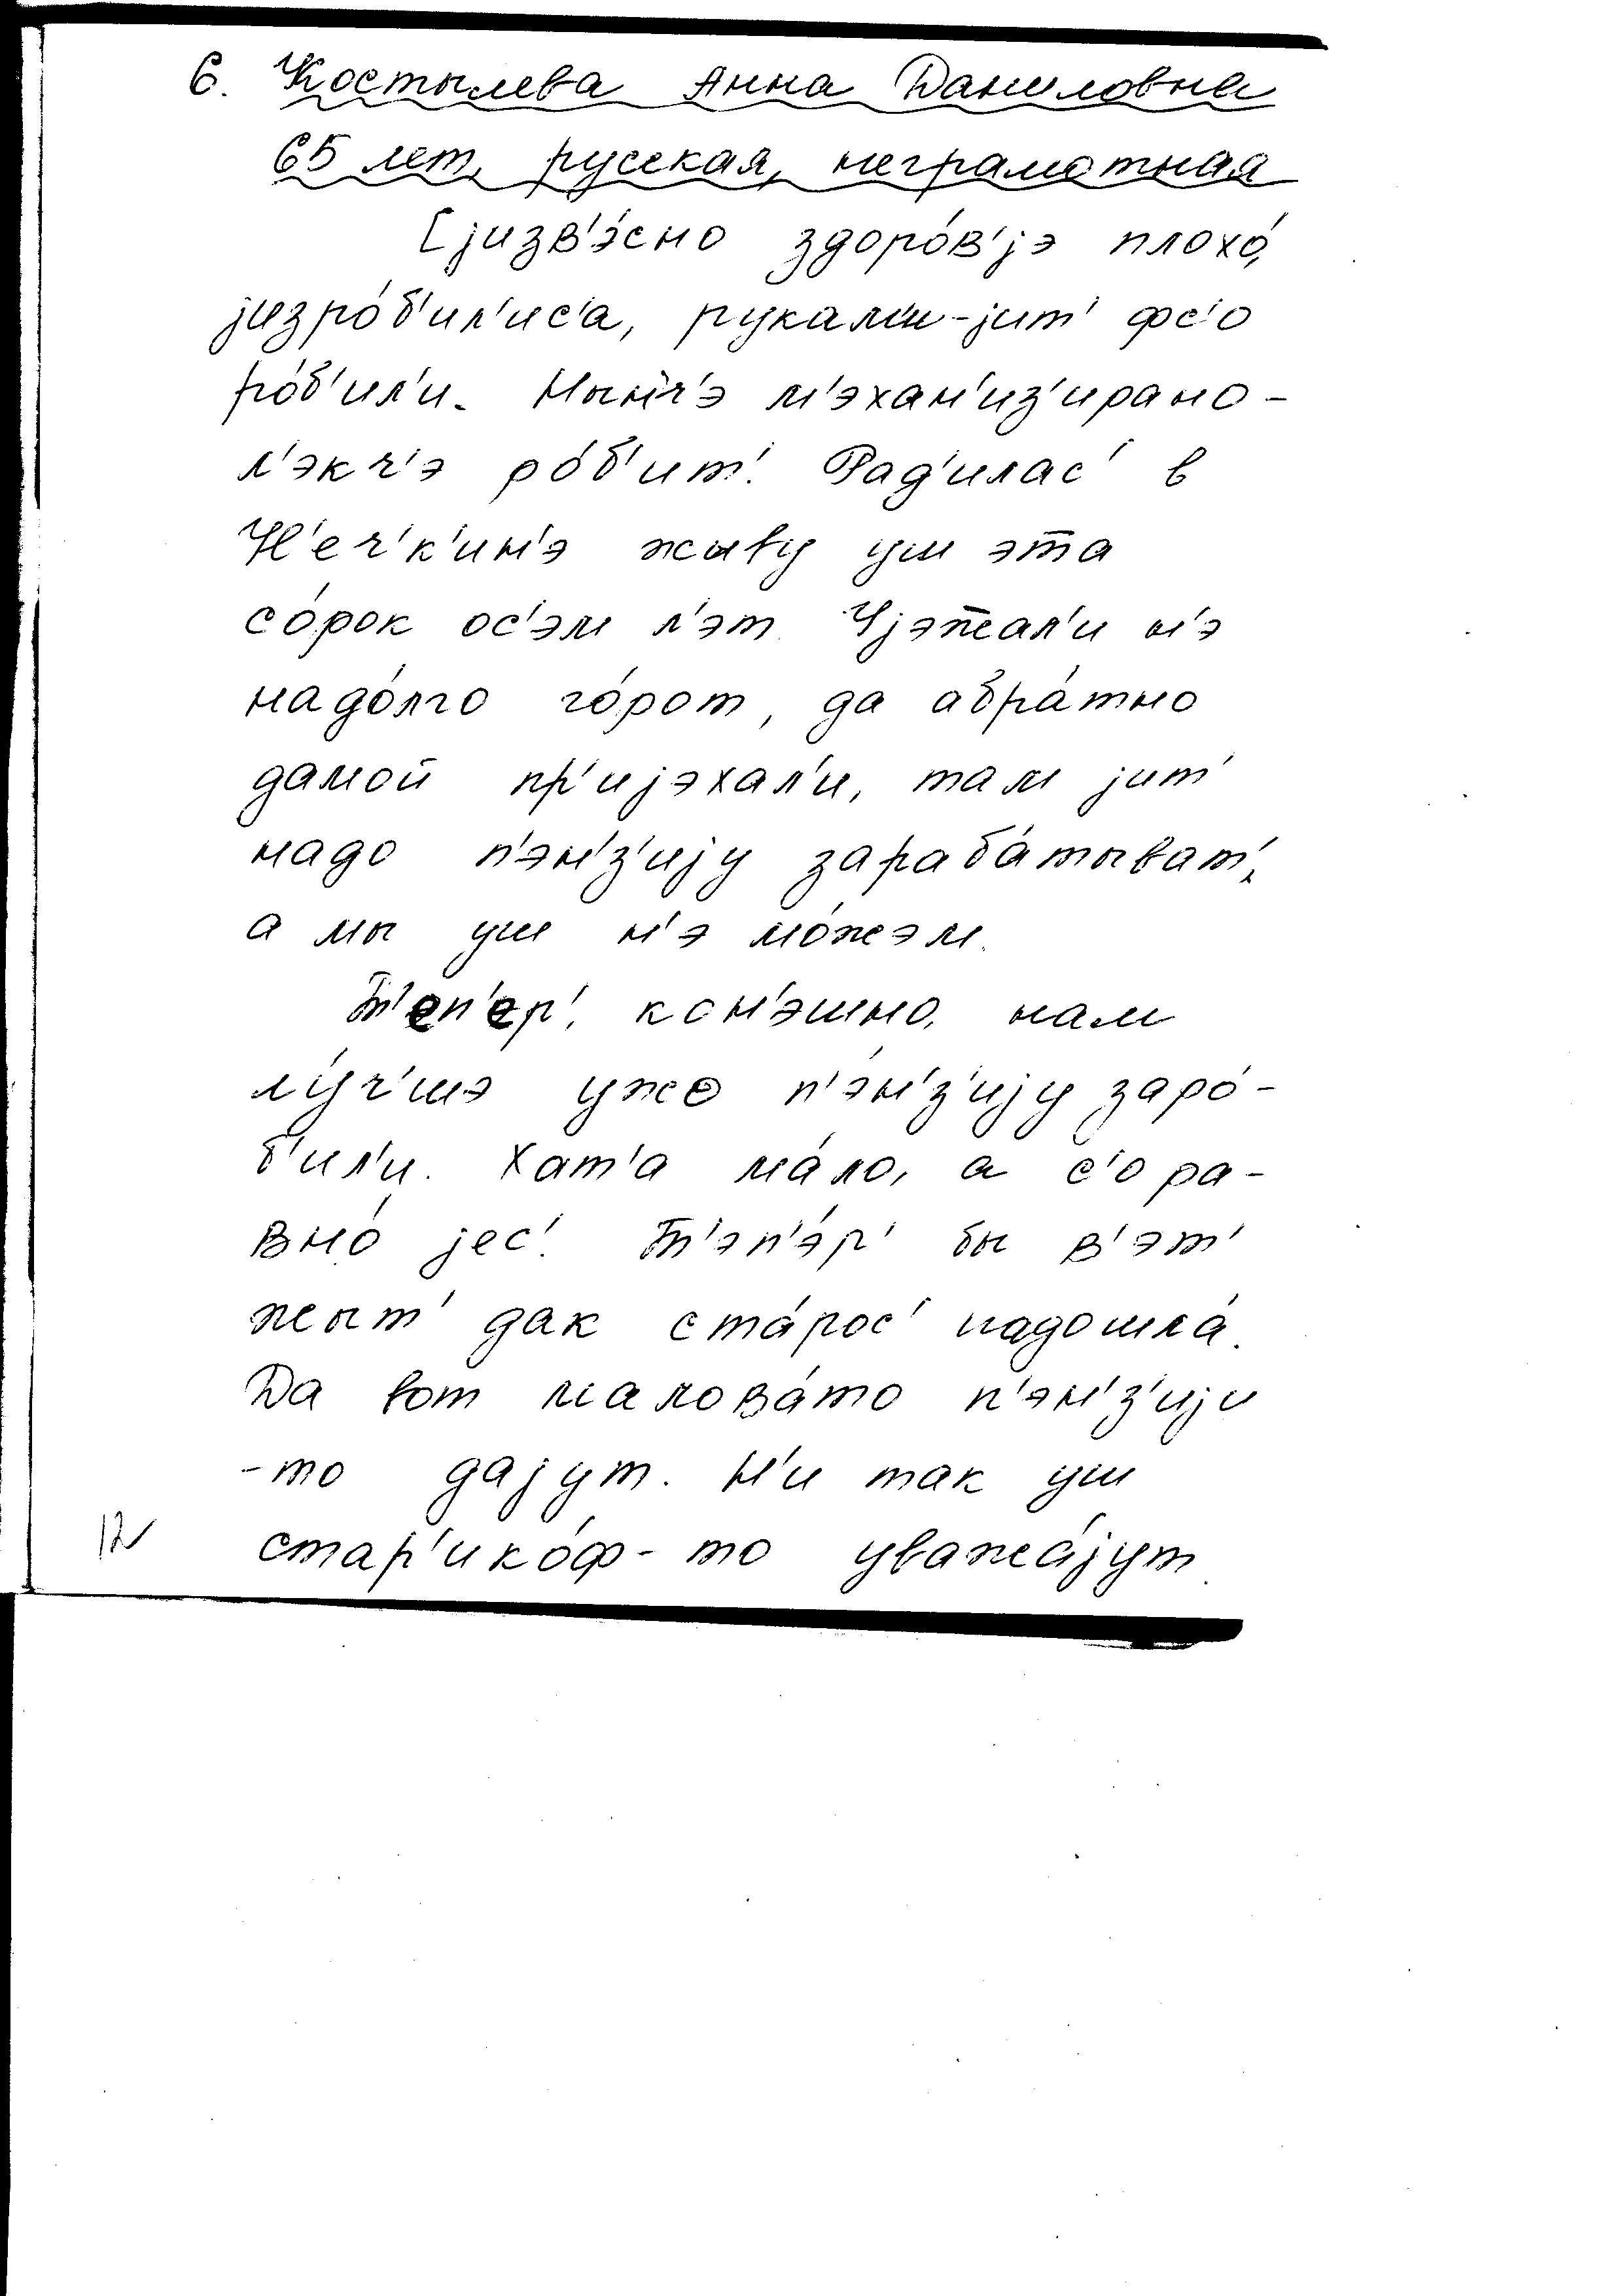 6. Костылева Анна Даниловна
65 лет, русская, неграмотная
[jизв'э́сно здоро́в'jэ плохо́,
jизро́б'ил'ис'а, рукам'и-jит' фс'о
ро́б'ил'и. Нын'ч'э м'эхан'из'ирано -
л'экч'э ро́б'ит'. Рад'илас' в
Н'еч'к'ин'э жыву уш эта
со́рок ос'эм л'эт. Уjэжал'и н'э
надо́лго го́рот, да абра́тно
дамой пр'иjэхал'и, там jит'
надо п'эн'з'иjу зараба́тыват',
а мы уш н'э мо́жэм.
Т'еп'ер', кон'эшно, нам
лу́ч'шэ уже п'э́н'з'иjу заро́-
б'ил'и. Хат'а ма́ло, а с'о ра-
вно́ jес'. Т'эп'э́р' бы в'эт'
жыт' дак ста́рос' надошла́.
Да вот малова́то п'эн'з'иjи
-то даjут. Н'и так уш
стар'ико́ф-то уважа́jут.
12